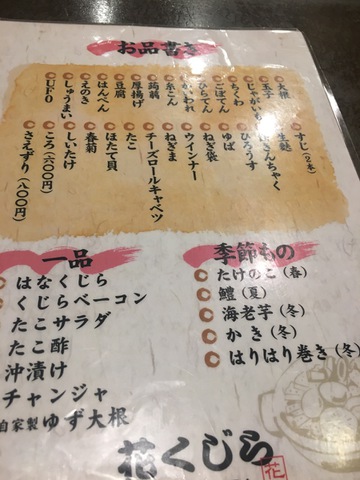 お品書き
大根
玉子
じゃがいも
ちくわ
ごぼてん
ひらてん
かいわれ
糸こん
蒟蒻
厚揚げ
豆腐
はんぺん
えのき
しゅうまい
UFO
すじ(2本)
生麩
ひろうす
ゆば
ねぎ袋
ウインナー
ねぎま
チーズロールキャベツ
たこ
ほたて貝
春菊
しいたけ
ころ(六〇〇円)
さえずり(八〇〇円)
一品
はなくじら
くじらベーコン
たこサラダ
たこ酢
沖漬け
チャンジャ
自家製ゆず大根
季節もの
たけのこ(春)
鱧(夏)
海老芋(冬)
かき(冬)
はりはり巻き(冬)
花くじら
花